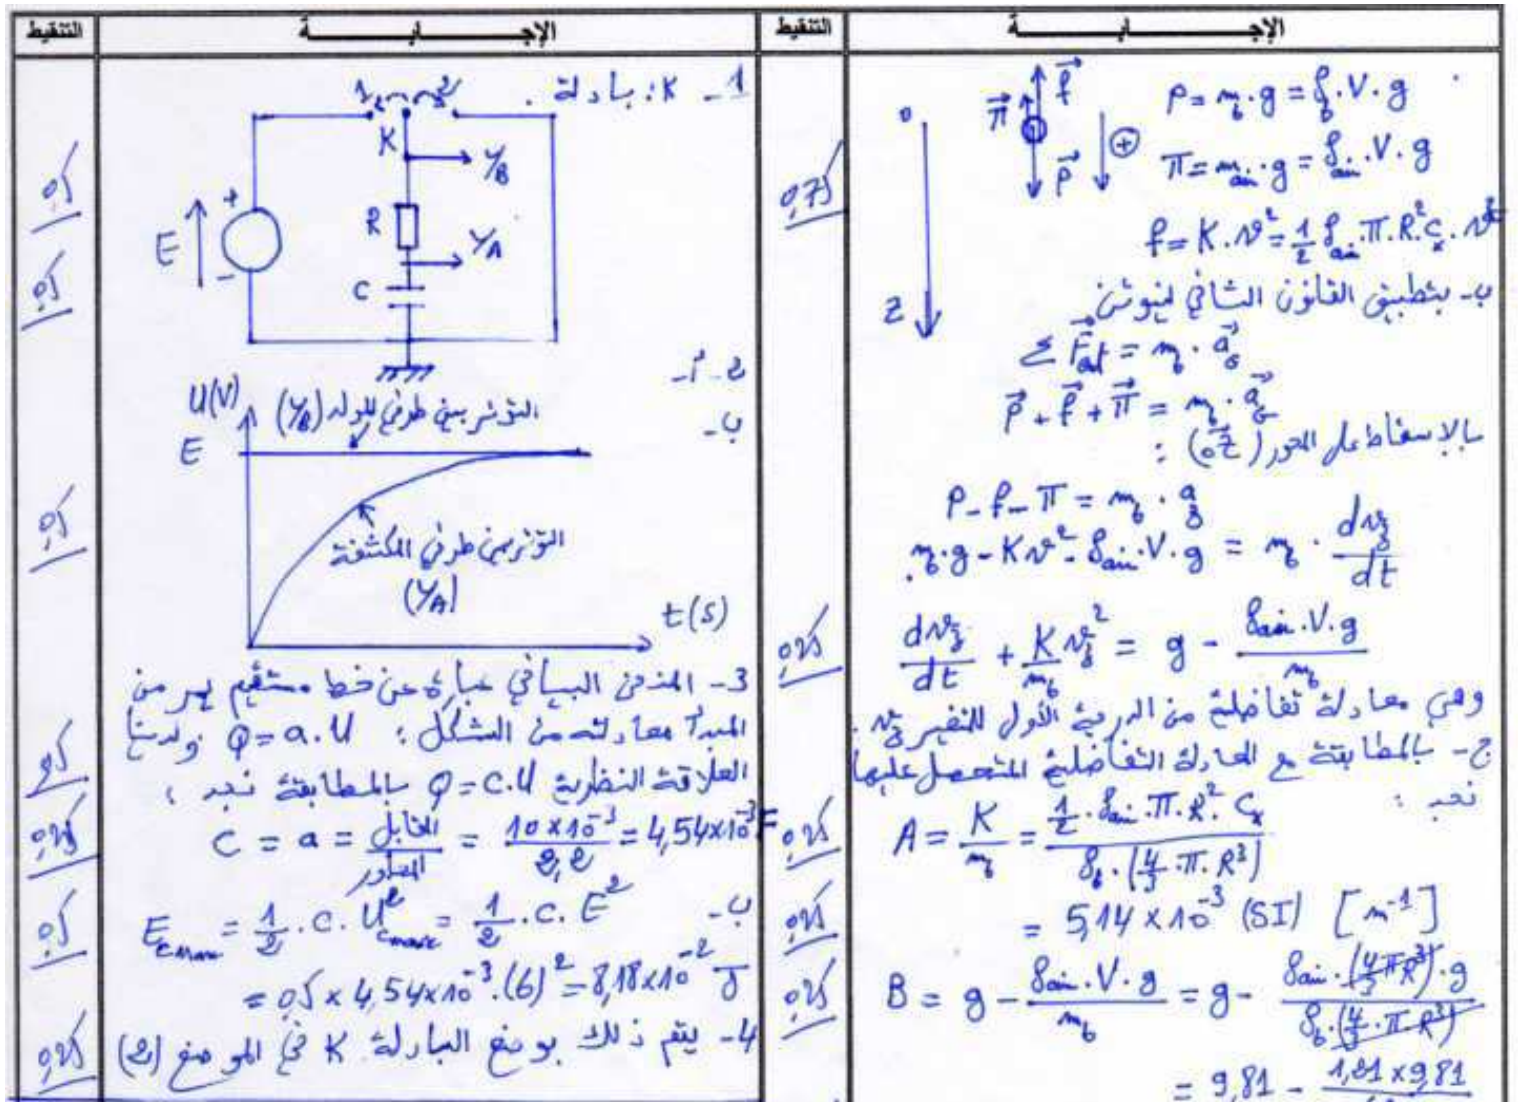 الإجـــابـــة
التنقيط
P = m_b . g = ρ_b . V . g
π = m_air . g = ρ_air . V . g
f = K . v² = 1/2 ρ_air . π . R² . C_x . v²
0
Z
f
π
P
+
0,75
ب- بتطبيق القانون الثاني لنيوتن
Σ F_ext = m_b . a_G
P + f + π = m_b . a_G
بالاسقاط على المحور (oz) :
P - f - π = m_b . a_z
m_b . g - K v² - ρ_air . V . g = m_b . dv_z/dt
dv_z/dt + K/m_b v_z² = g - ρ_air . V . g / m_b
0,25
وهي معادلة تفاضلية من الدرجة الأول للمتغير v_z.
ج- بالمطابقة مع المعادلة التفاضلية المتحصل عليها
نجد :
A = K/m_b = 1/2 . ρ_air . π . R² . C_x / ρ_b . (4/3 . π . R³)
0,25
= 5,14 × 10⁻³ (SI) [m⁻¹]
0,25
B = g - ρ_air . V . g / m_b = g - ρ_air . (4/3 π R³) . g / ρ_b . (4/3 . π . R³)
0,25
= 9,81 - 1,21 × 9,81
الإجـــابـــة
التنقيط
1- K : بادلة .
1
2
K
Y_B
R
Y_A
C
E
+
-
0,5
0,5
2- أ-
ب-
U(V)
E
التوتر بين طرفي المولد (Y_B)
التوتر بين طرفي المكثفة
(Y_A)
t(s)
0,5
3- المنحنى البياني عبارة عن خط مستقيم يمر من
المبدأ معادلته من الشكل : Q = a.U ولدينا
العلاقة النظرية Q = C.U بالمطابقة نجد :
0,5
C = a = المقابل/المجاور = 10 × 10⁻³/2,2 = 4,54 × 10⁻³ F
0,25
ب- E_Cmax = 1/2 . C . U²_Cmax = 1/2 . C . E²
0,5
= 0,5 × 4,54 × 10⁻³ . (6)² = 8,18 × 10⁻² J
4- يتم ذلك بوضع البادلة K في الموضع (2)
0,25